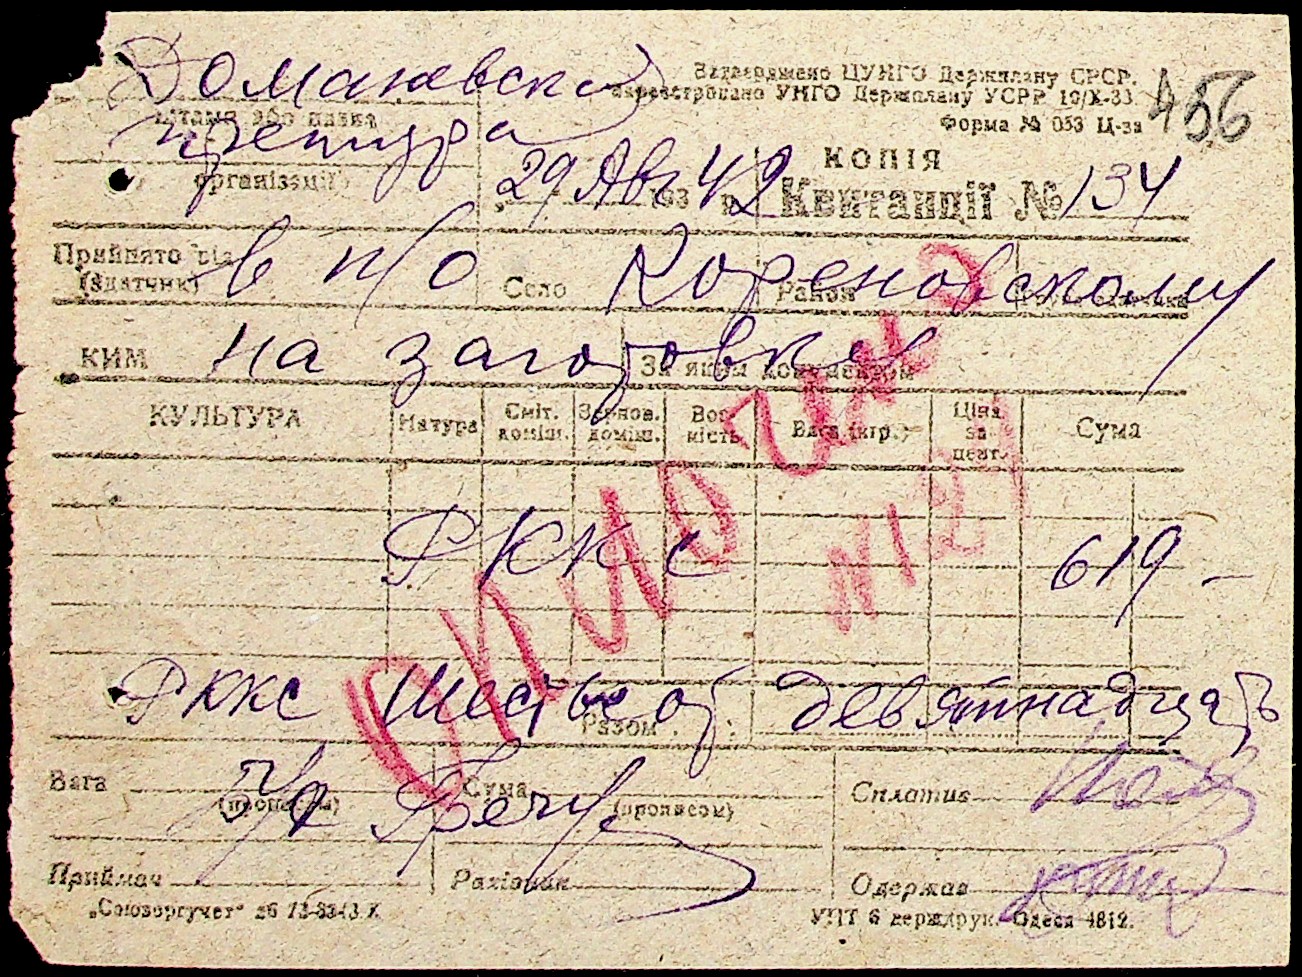 Затверджено ЦУНГО Держплану СРСР.
Зареєстровано УНГО Держплану УСРР 10/X-33.
Форма № 053 Ц-за
456
Доманевская
Штамп або назва
претура
організації
29 Авг 193 42 р.
КОПІЯ
Квитанції № 134
Прийнято від
(здатчик)
в п/о Село Кореновскому Район
КИМ на заготовки За яким документом
КУЛЬТУРА Натура Сміт. доміш. Зернов. доміш. Вогкість Вага (кгр.) Ціна за цент. Сума
РККС 619 —
№ 127
РККС Шестьсот девятнадцать
Разом
Вага (прописом) Сума (прописом) Сплатив
Приймач Рахівник Одержав
„Союзоргучет“
УПТ 6 держдрук. Одеса 4812.